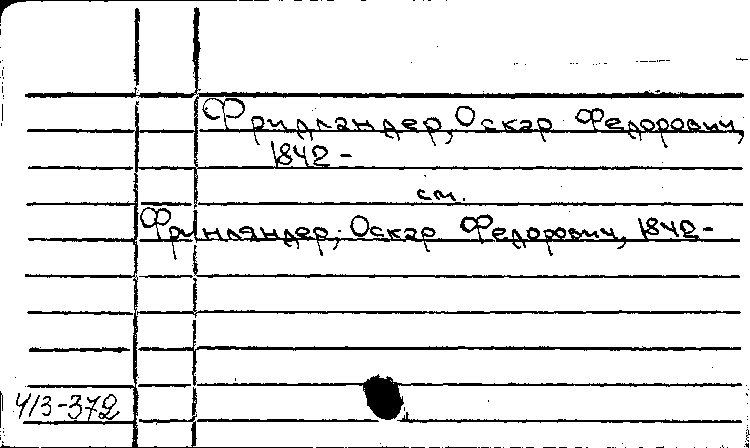 Фридландер, Оскар Федорович,
1842-
см.
Фринляндер, Оскар Федорович, 1842-
413-372